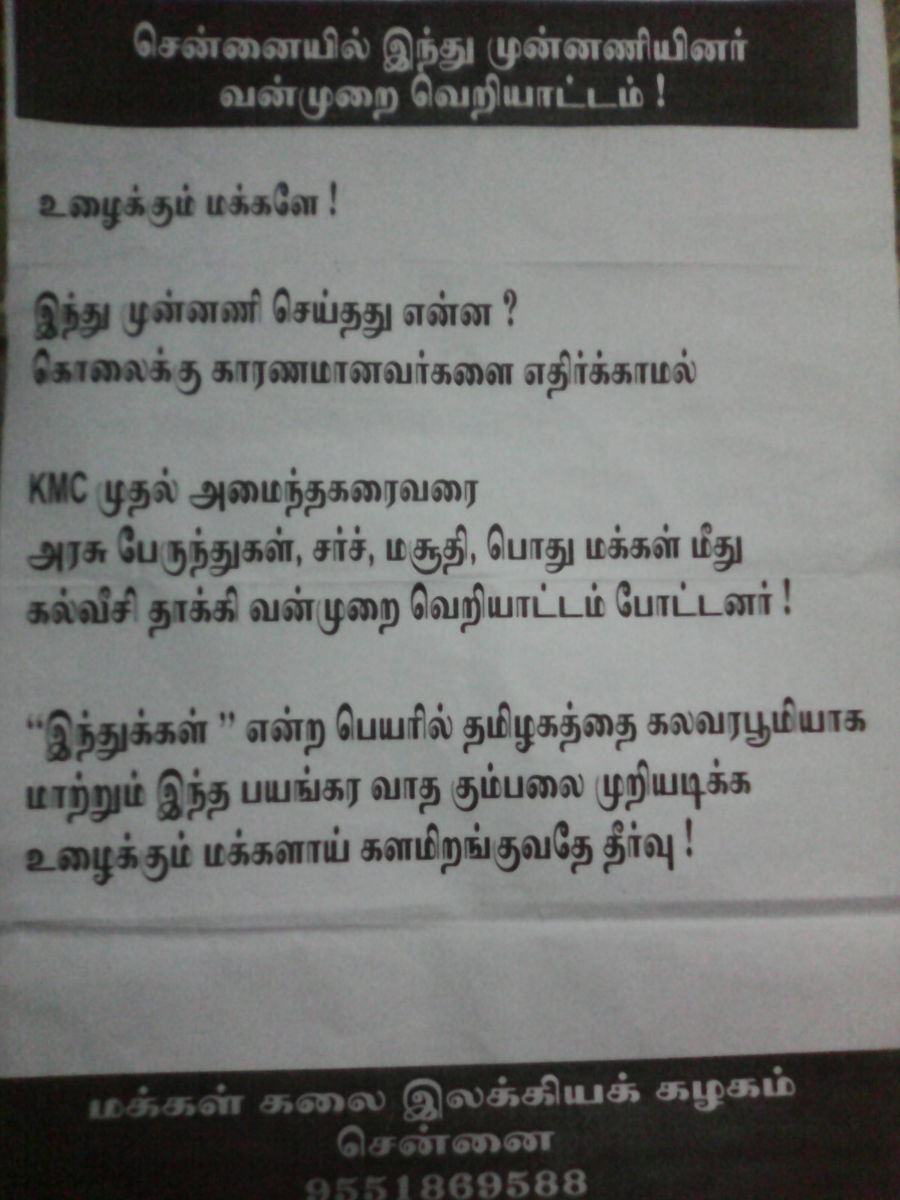 சென்னையில் இந்து முன்னணியினர்
வன்முறை வெறியாட்டம் !
உழைக்கும் மக்களே !
இந்து முன்னணி செய்தது என்ன ?
கொலைக்கு காரணமானவர்களை எதிர்க்காமல்
KMC முதல் அமைந்தகரைவரை
அரசு பேருந்துகள், சர்ச், மசூதி, பொது மக்கள் மீது
கல்வீசி தாக்கி வன்முறை வெறியாட்டம் போட்டனர் !
“இந்துக்கள் ” என்ற பெயரில் தமிழகத்தை கலவரபூமியாக
மாற்றும் இந்த பயங்கர வாத கும்பலை முறியடிக்க
உழைக்கும் மக்களாய் களமிறங்குவதே தீர்வு !
மக்கள் கலை இலக்கியக் கழகம்
சென்னை
9551869588